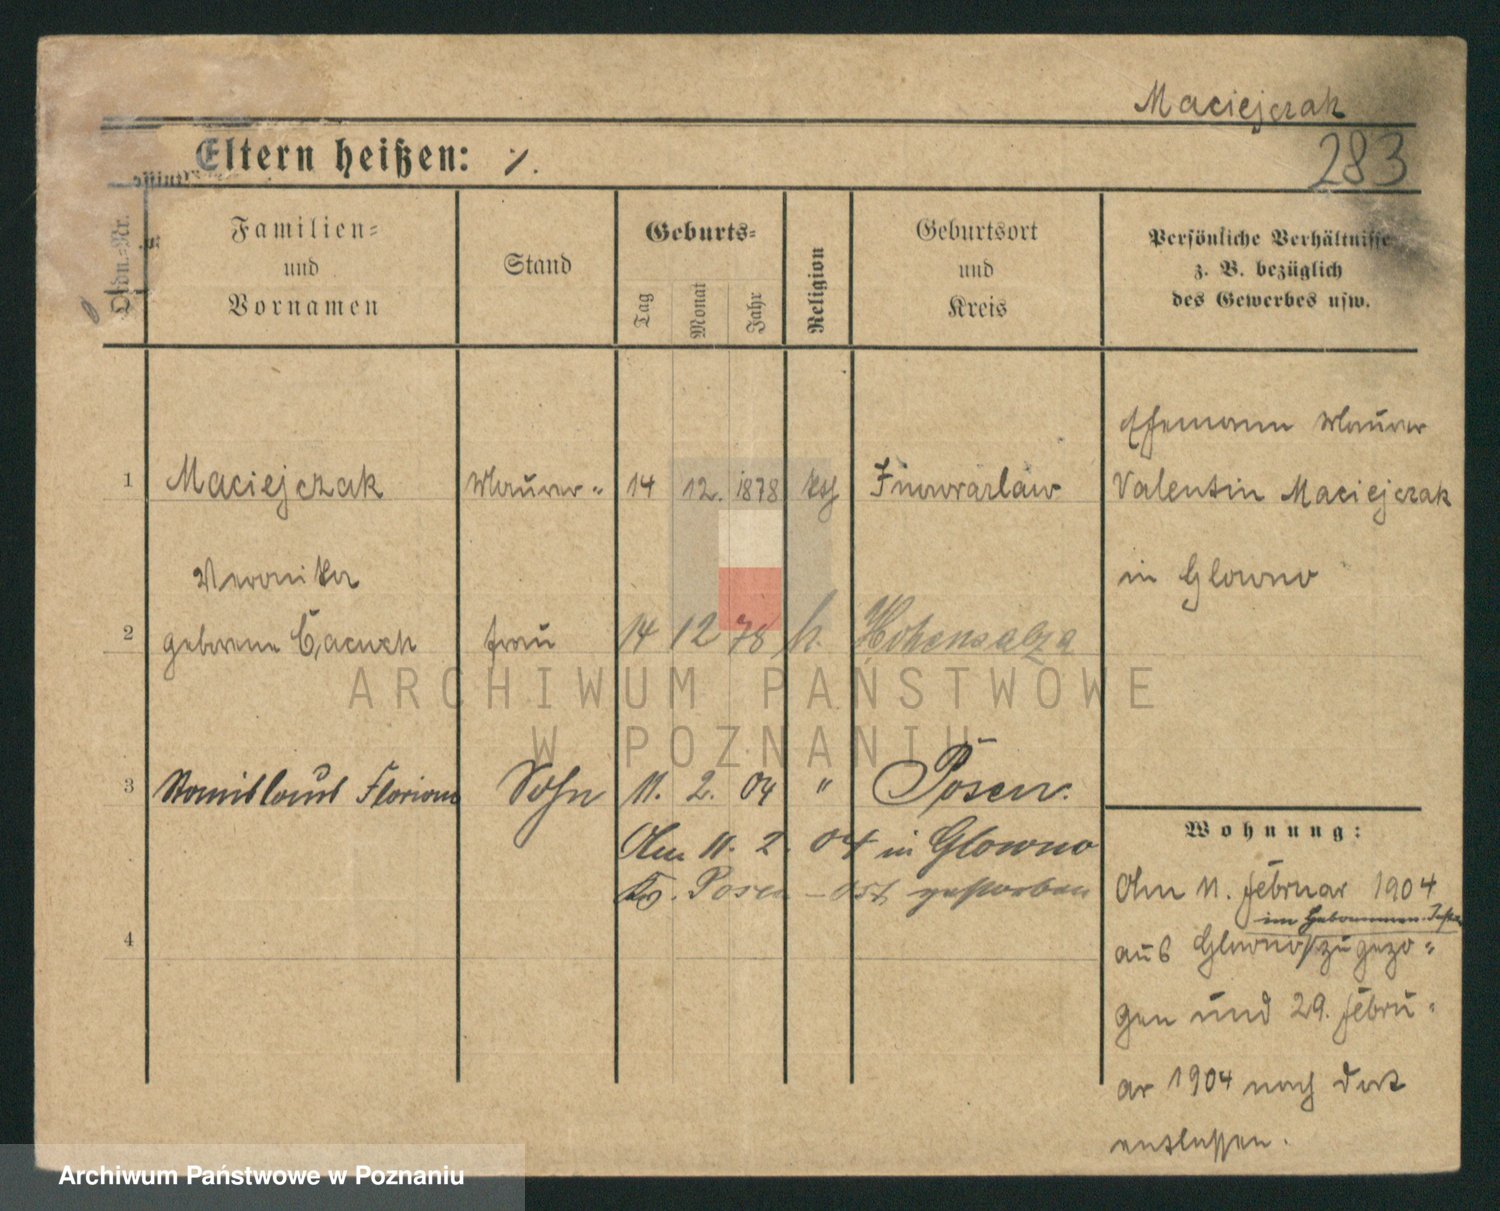 Maciejczak
283
Eltern heißen: ./.
Ordn.-Nr.
Familien-
und
Vornamen
Stand
Geburts-
Tag
Monat
Jahr
Religion
Geburtsort
und
Kreis
Persönliche Verhältnisse
z. B. bezüglich
des Gewerbes usw.
Ehemann Maurer
1 Maciejczak Maurer- 14 12. 1878 kth Inowrazlaw Valentin Maciejczak
Veronika in Glowno
2 geborene frau 14 12 78 k. Hohensalza
3 Stanislaus Florian Sohn 11. 2. 04 " Posen.
Am 11. 2. 04 in Glowno
Kr. Posen-Ost gestorben
4
Wohnung:
Am 11. Februar 1904
im Hebammen-
aus Glowno zugezo-
gen und 29. Febru-
ar 1904 nach dort
entlassen.
ARCHIWUM PAŃSTWOWE
W POZNANIU
Archiwum Państwowe w Poznaniu